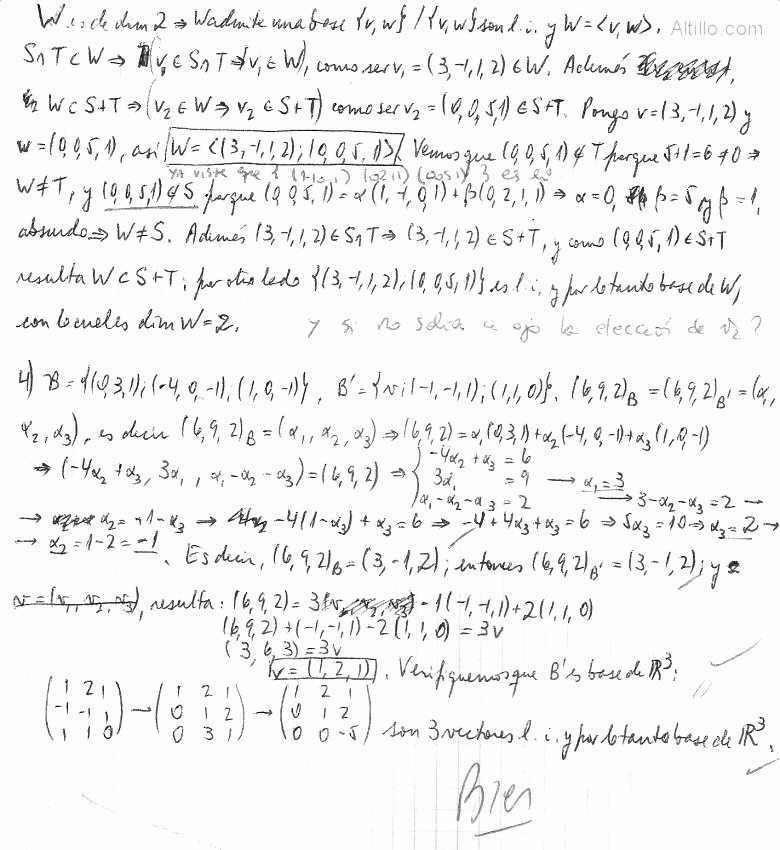 W es de dim 2 ⇒ W admite una base {v,w} / {v,w} son l.i. y W = <v,w>. Altillo.com
S∩T ⊂ W ⇒ (v₁ ∈ S∩T ⇒ v₁ ∈ W), como ser v₁ = (3,-1,1,2) ∈ W. Además
W ⊂ S+T ⇒ (v₂ ∈ W ⇒ v₂ ∈ S+T) como ser v₂ = (0,0,5,1) ∈ S+T. Pongo v = (3,-1,1,2) y
w = (0,0,5,1), así W = <(3,-1,1,2); (0,0,5,1)>. Vemos que (0,0,5,1) ∉ T porque 5+1=6≠0 ⇒
ya viste que {
W ≠ T, y (0,0,5,1) ∉ S porque (0,0,5,1) = α(1,-1,0,1) + β(0,2,1,1) ⇒ α=0, β=5 y β=1,
absurdo ⇒ W ≠ S. Además (3,-1,1,2) ∈ S∩T ⇒ (3,-1,1,2) ∈ S+T, y como (0,0,5,1) ∈ S+T
resulta W ⊂ S+T; por otro lado {(3,-1,1,2), (0,0,5,1)} es l.i. y por lo tanto base de W,
con lo cual es dim W = 2. y si no salía a ojo la elección de v₂?
4) B = {(0,3,1); (-4,0,-1); (1,0,-1)}, B' = {v; (-1,-1,1); (1,1,0)}. (6,9,2)_B = (6,9,2)_B' = (α₁,
α₂, α₃), es decir (6,9,2)_B = (α₁, α₂, α₃) ⇒ (6,9,2) = α₁(0,3,1) + α₂(-4,0,-1) + α₃(1,0,-1)
⇒ (-4α₂+α₃, 3α₁, α₁-α₂-α₃) = (6,9,2) ⇒ { -4α₂+α₃ = 6
3α₁ = 9 → α₁=3
α₁-α₂-α₃ = 2 → 3-α₂-α₃ = 2 →
→ α₂ = 1-α₃ → -4(1-α₃) + α₃ = 6 ⇒ -4+4α₃+α₃ = 6 ⇒ 5α₃ = 10 ⇒ α₃ = 2 →
→ α₂ = 1-2 = -1. Es decir, (6,9,2)_B = (3,-1,2); entonces (6,9,2)_B' = (3,-1,2); y
v = (v₁, v₂, v₃), resulta: (6,9,2) = 3 v -1(-1,-1,1) + 2(1,1,0)
(6,9,2) + (-1,-1,1) - 2(1,1,0) = 3v
(3,6,3) = 3v
v = (1,2,1). Verifiquemos que B' es base de ℝ³:
1 2 1 1 2 1 1 2 1
-1 -1 1 → 0 1 2 → 0 1 2 son 3 vectores l.i. y por lo tanto base de ℝ³.
1 1 0 0 3 1 0 0 -5
Bien